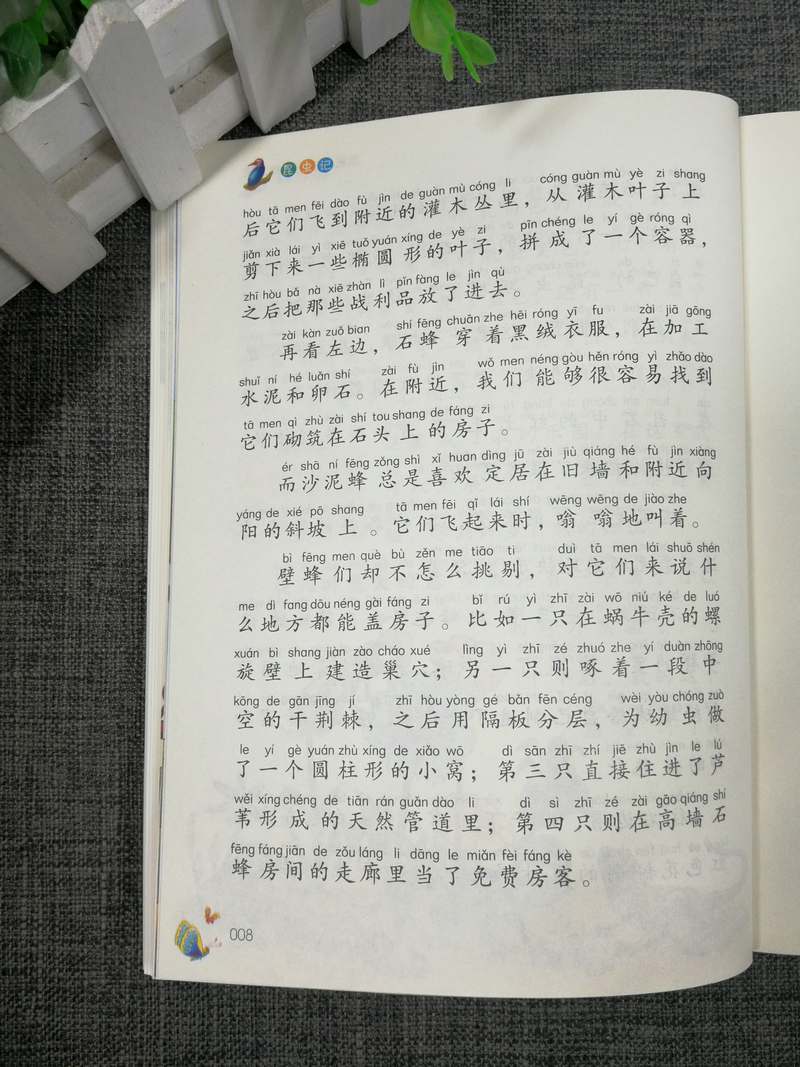 昆虫记
hòu tā men fēi dào fù jìn de guàn mù cóng li cóng guàn mù yè zi shang
后它们飞到附近的灌木丛里，从灌木叶子上
jiǎn xià lái yì xiē tuǒ yuán xíng de yè zi pīn chéng le yí gè róng qì
剪下来一些椭圆形的叶子，拼成了一个容器，
zhī hòu bǎ nà xiē zhàn lì pǐn fàng le jìn qù
之后把那些战利品放了进去。
zài kàn zuǒ bian shí fēng chuān zhe hēi róng yī fu zài jiā gōng
再看左边，石蜂穿着黑绒衣服，在加工
shuǐ ní hé luǎn shí zài fù jìn wǒ men néng gòu hěn róng yì zhǎo dào
水泥和卵石。在附近，我们能够很容易找到
tā men qì zhù zài shí tou shang de fáng zi
它们砌筑在石头上的房子。
ér shā ní fēng zǒng shì xǐ huan dìng jū zài jiù qiáng hé fù jìn xiàng
而沙泥蜂总是喜欢定居在旧墙和附近向
yáng de xié pō shang tā men fēi qǐ lái shí wēng wēng de jiào zhe
阳的斜坡上。它们飞起来时，嗡嗡地叫着。
bì fēng men què bù zěn me tiāo ti duì tā men lái shuō shén
壁蜂们却不怎么挑剔，对它们来说什
me dì fang dōu néng gài fáng zi bǐ rú yì zhī zài wō niú ké de luó
么地方都能盖房子。比如一只在蜗牛壳的螺
xuán bì shang jiàn zào cháo xué lìng yì zhī zé zhuó zhe yí duàn zhōng
旋壁上建造巢穴；另一只则啄着一段中
kōng de gān jīng jí zhī hòu yòng gé bǎn fēn céng wèi yòu chóng zuò
空的干荆棘，之后用隔板分层，为幼虫做
le yí gè yuán zhù xíng de xiǎo wō dì sān zhī zhí jiē zhù jìn le lú
了一个圆柱形的小窝；第三只直接住进了芦
wěi xíng chéng de tiān rán guǎn dào li dì sì zhī zé zài gāo qiáng shí
苇形成的天然管道里；第四只则在高墙石
fēng fáng jiān de zǒu láng li dāng le miǎn fèi fáng kè
蜂房间的走廊里当了免费房客。
008